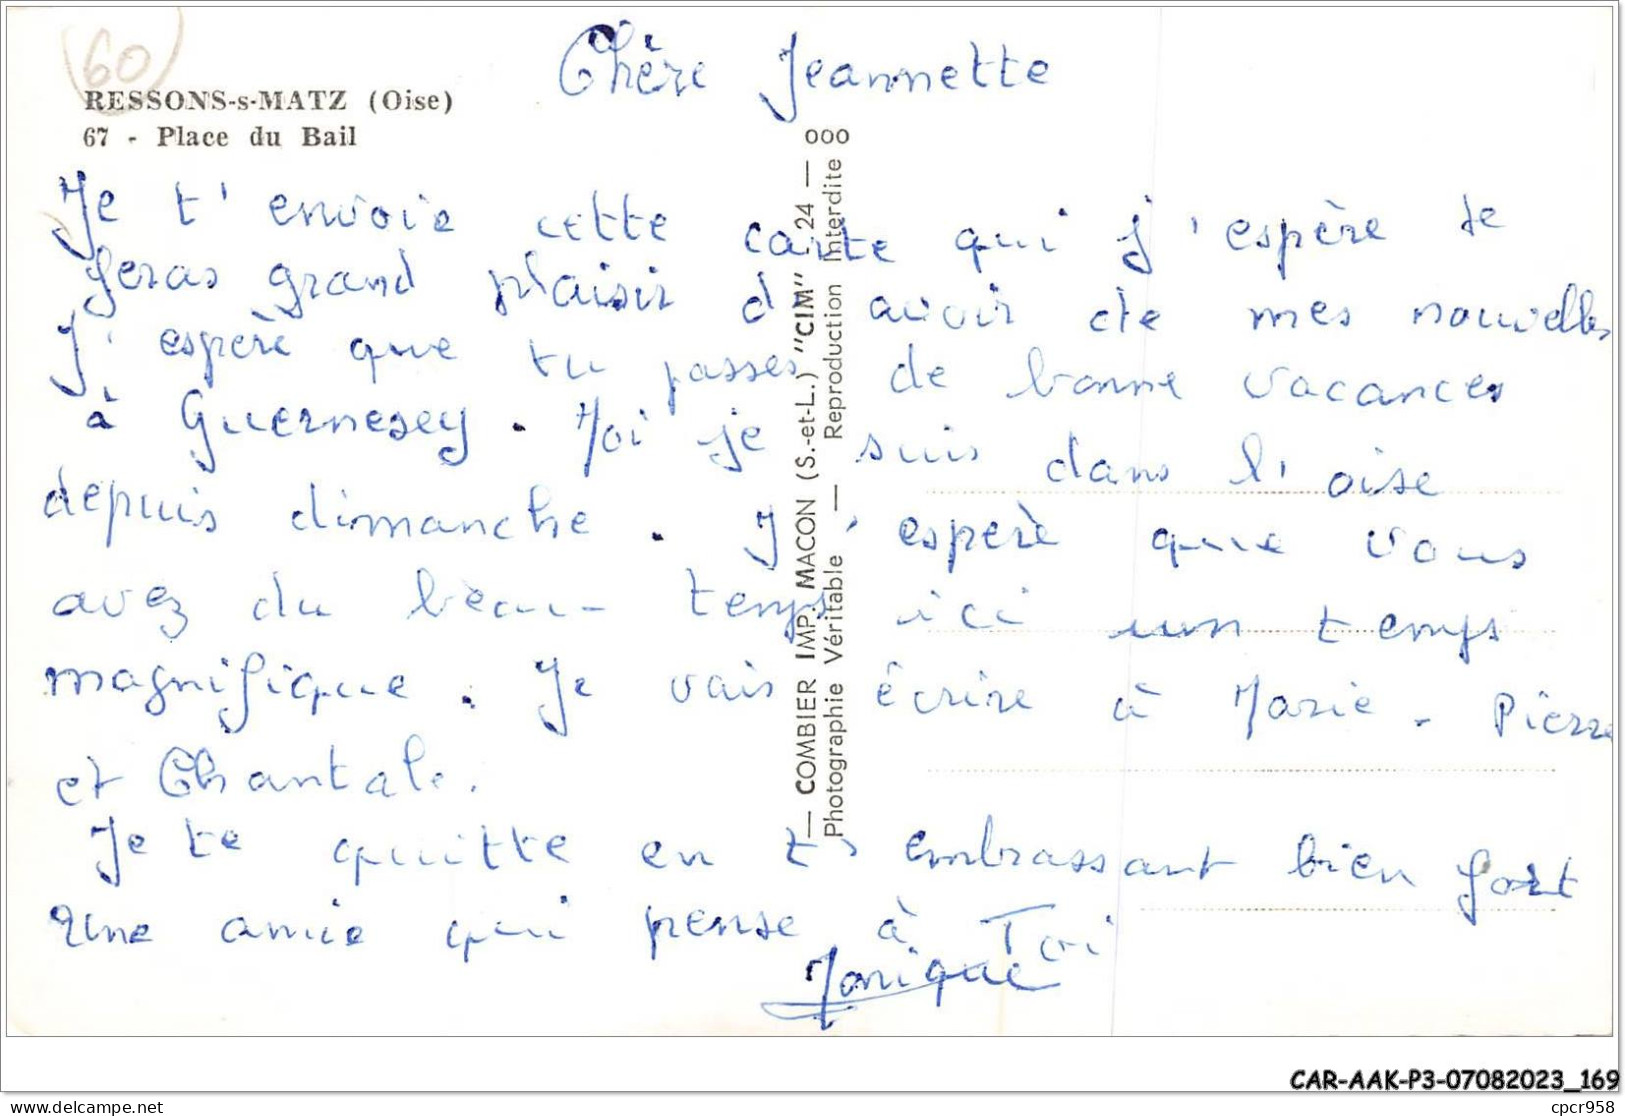 (60)
RESSONS-s-MATZ (Oise)
67 - Place du Bail
Chère Jeannette
Je t' envoie cette carte qui j'espère te
feras grand plaisir d'avoir de mes nouvelles
J'espère que tu passes de bonne vacances
à Guernesey. Moi je suis dans l'oise
depuis dimanche. J'espère que vous
avez du beau-temps ici un temps
magnifique. Je vais écrire à Marie-Pierre
et Chantale.
Je te quitte en t'embrassant bien fort
Une amie qui pense à Toi
Monique
— COMBIER IMP. MACON (S.-et-L.) "CIM" - 24 — 000
Photographie Véritable — Reproduction Interdite
CAR-AAK-P3-07082023_169
www.delcampe.net
cpcr958